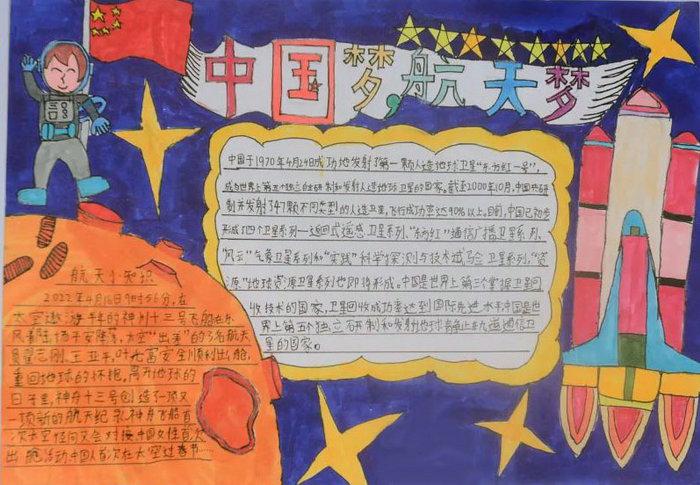 中国梦,航天梦
中国于1970年4月24日成功地发射了第一颗人造地球卫星“东方红一号”,
成为世界上第五个独立自主研制和发射人造地球卫星的国家。截至2000年10月,中国共研
制并发射了47颗不同类型的人造卫星,飞行成功率达90%以上。目前,中国已初步
形成了四个卫星系列—返回式遥感卫星系列、“东方红”通信广播卫星系列、
“风云”气象卫星系列和“实践”科学探测与技术试验卫星系列,“资
源”地球资源卫星系列也即将形成。中国是世界上第三个掌握卫星回
收技术的国家,卫星回收成功率达到国际先进水平;中国是世
界上第五个独立研制和发射地球静止轨道通信卫
星的国家。
航天小知识
2022年4月16日9时56分,在
太空遨游半年的神舟十三号飞船在东
风着陆场平安降落,太空“出差”的3名航天
员翟志刚、王亚平、叶光富安全顺利出舱,
重回地球的怀抱。离开地球的
日子里,神舟十三号创造了一项又
一项新的航天纪录,神舟飞船首
次太空径向交会对接,中国女性首次
出舱活动,中国人首次在太空过春节……